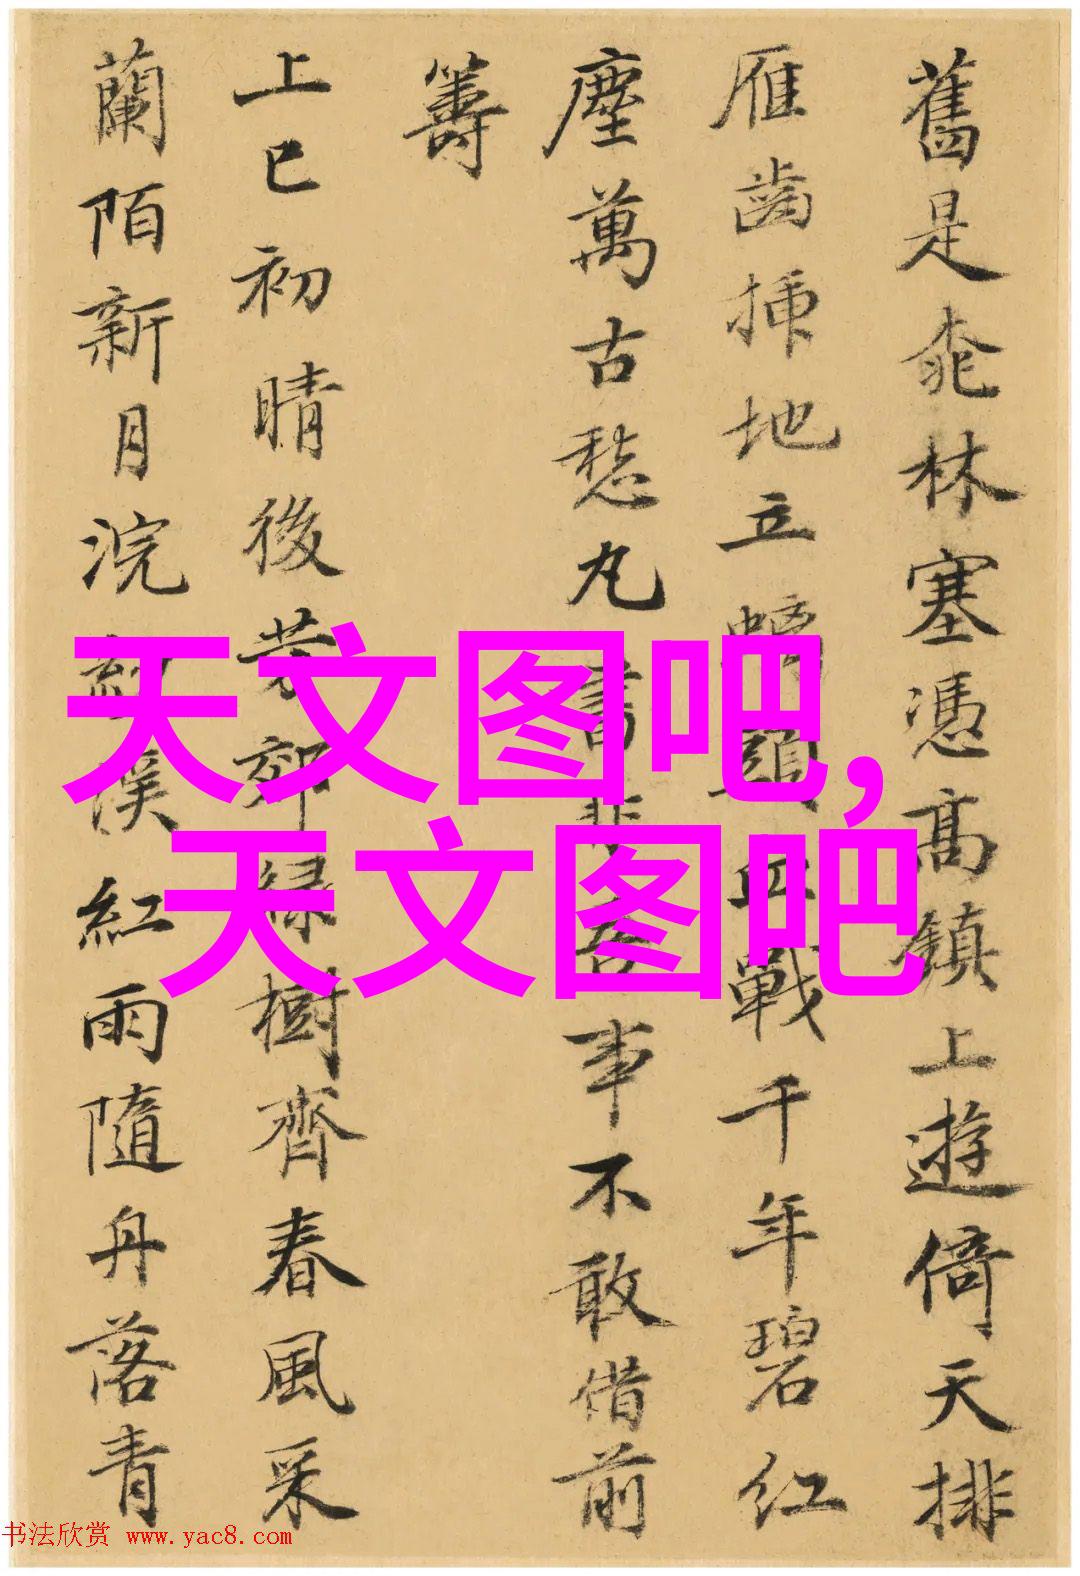 舊是㮈林塞憑高鎮上遊倚天排
雁齒插地立頭血戰千年碧紅
塵萬古愁丸書事不敢借前
籌
上巳初晴後芳郊緑樹齊春風采
蘭陌新月浣溪紅雨隨舟落青
天文图吧,
天文图吧
书法欣赏 www.yac8.com